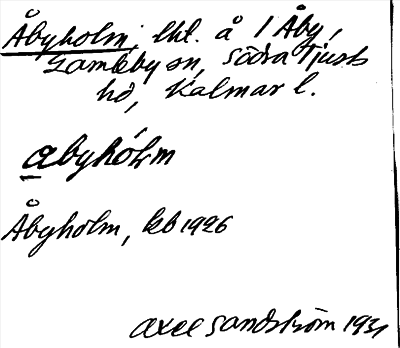 Åbyholm, lht. å 1 Åby,
Gamleby sn, Södra Tjusts
hd, Kalmar l.
abyhólm
Åbyholm, kb 1926
Axel Sandström 1931